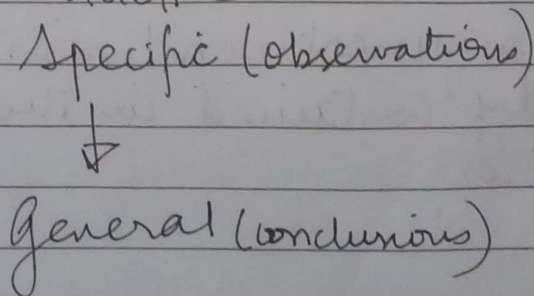 Specific (observations)
↓
General (conclusions)